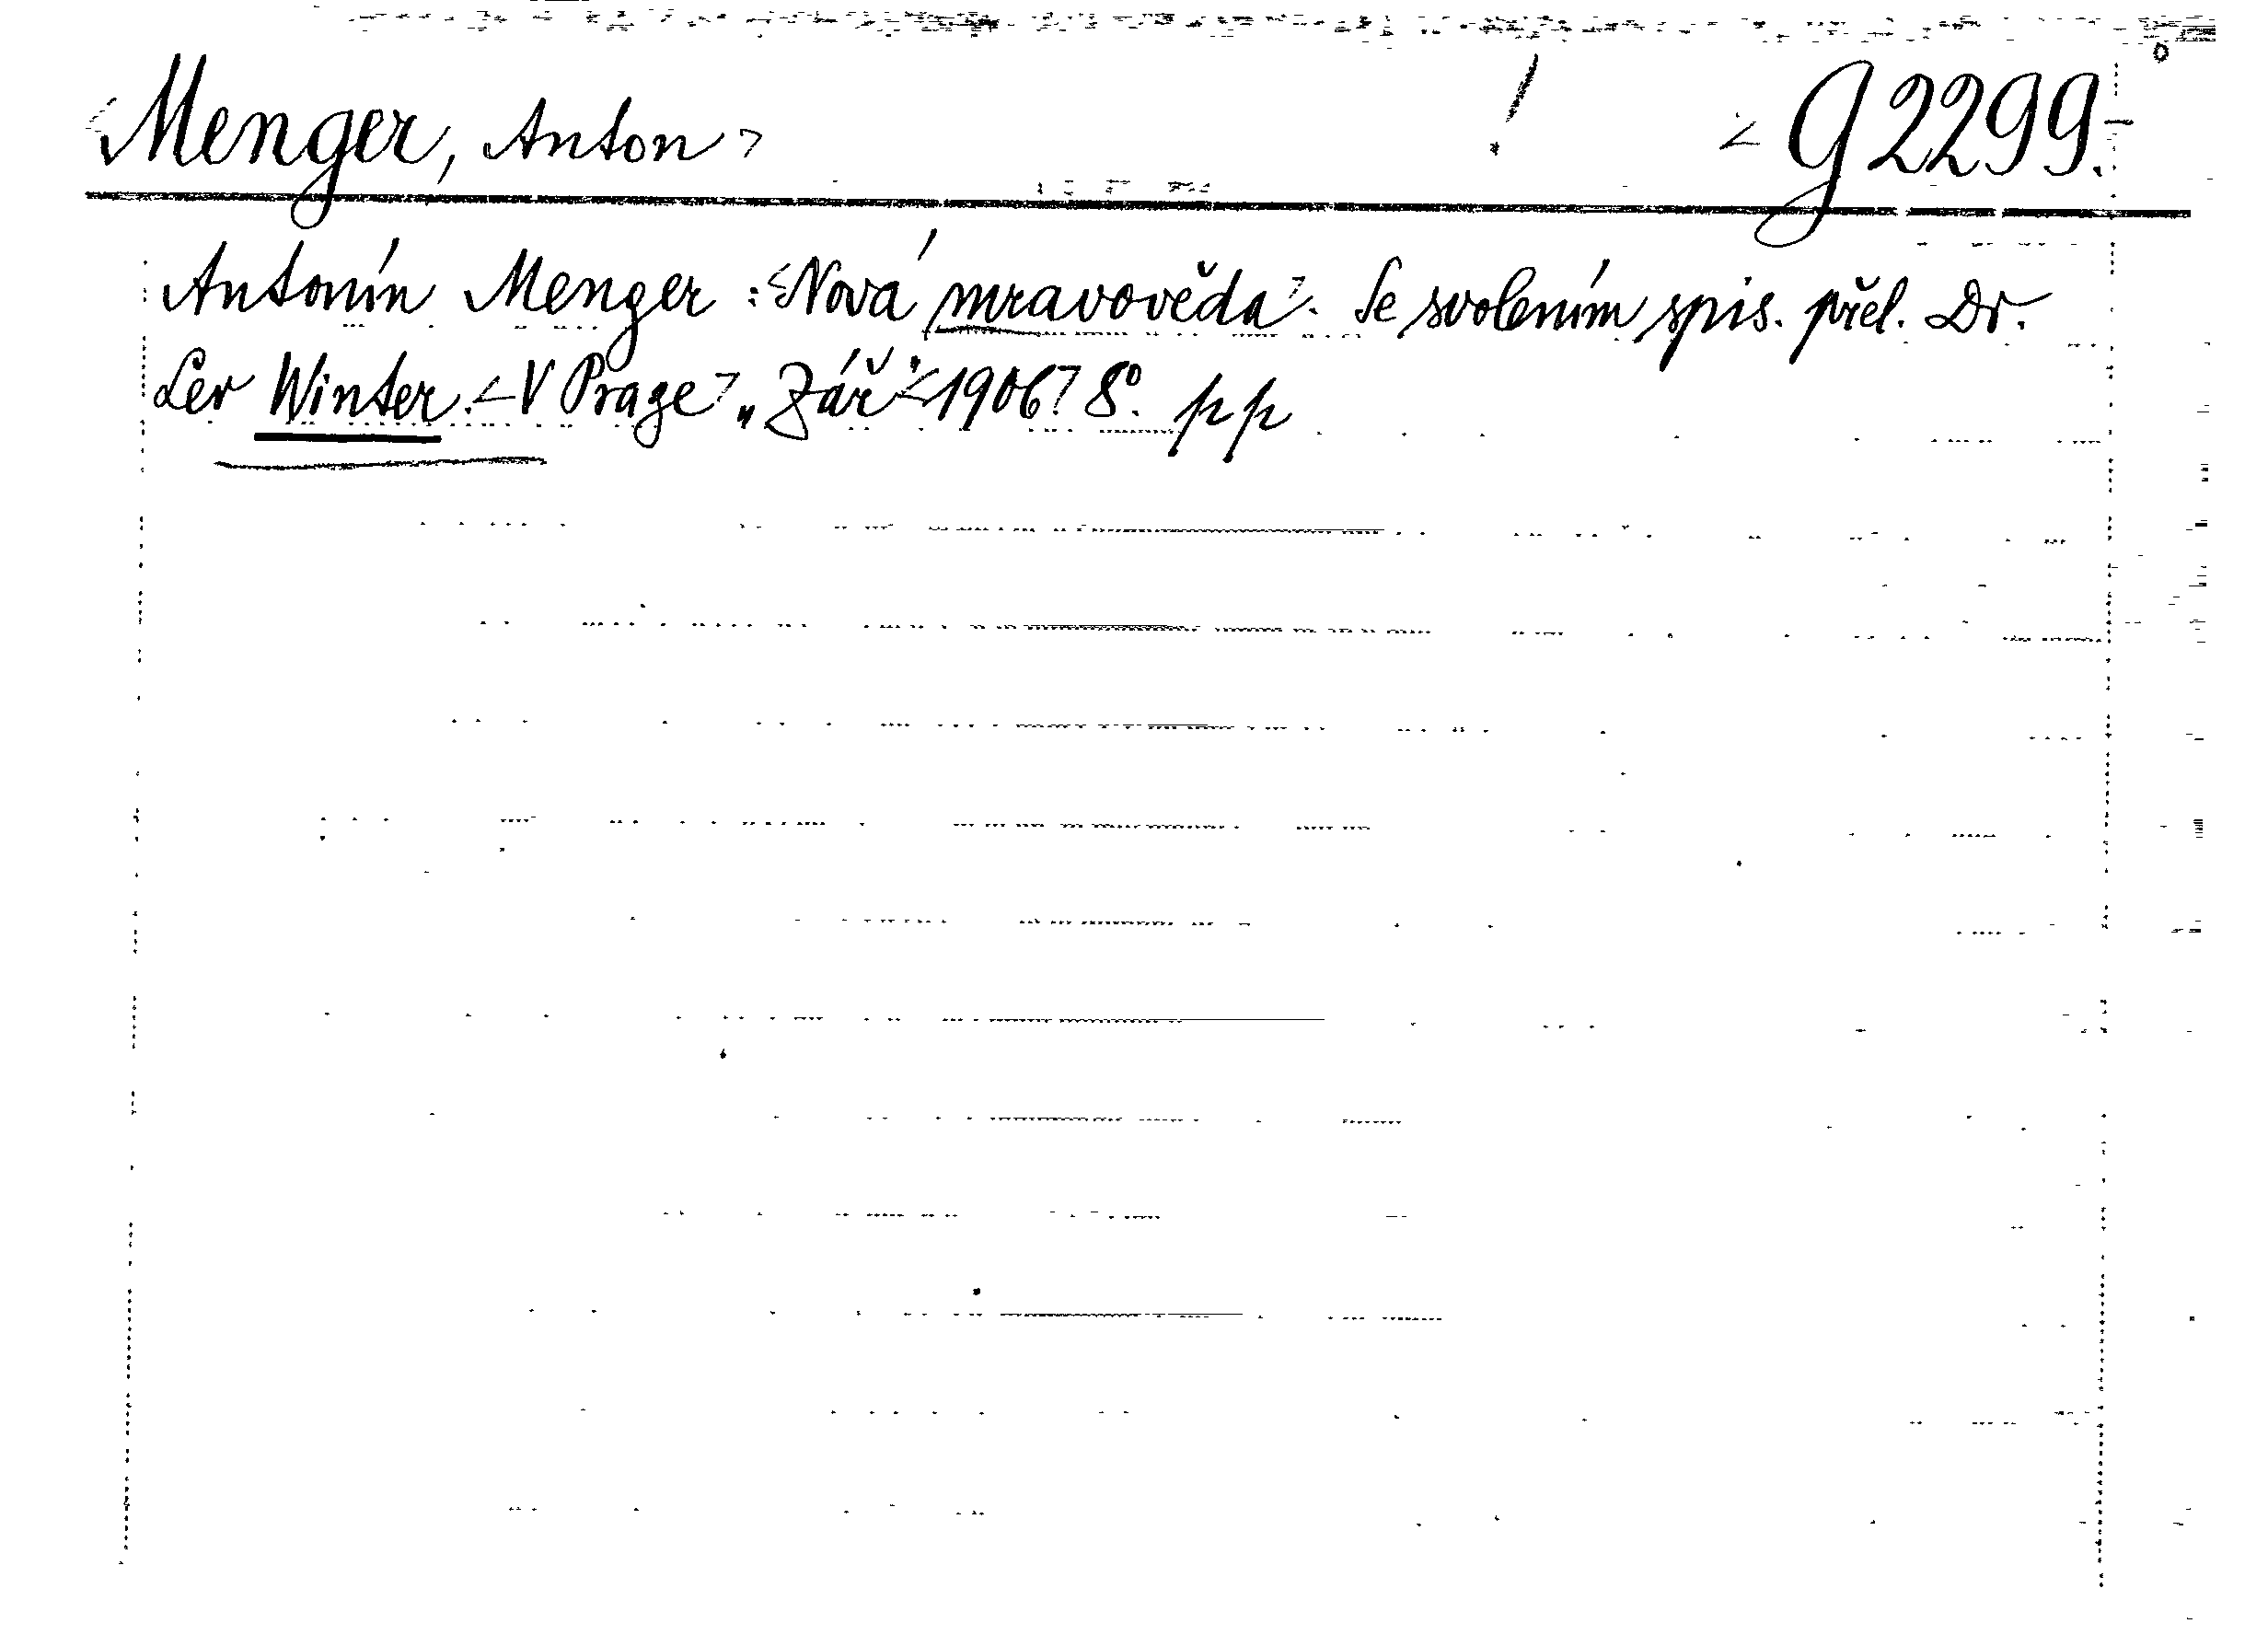 <Menger, Anton> ! <G 2299.
Antonín Menger: <Nová mravověda>. Se svolením spis. přel. Dr.
Lev Winter. <V Praze> „Zář“ <1906> 8°. pp